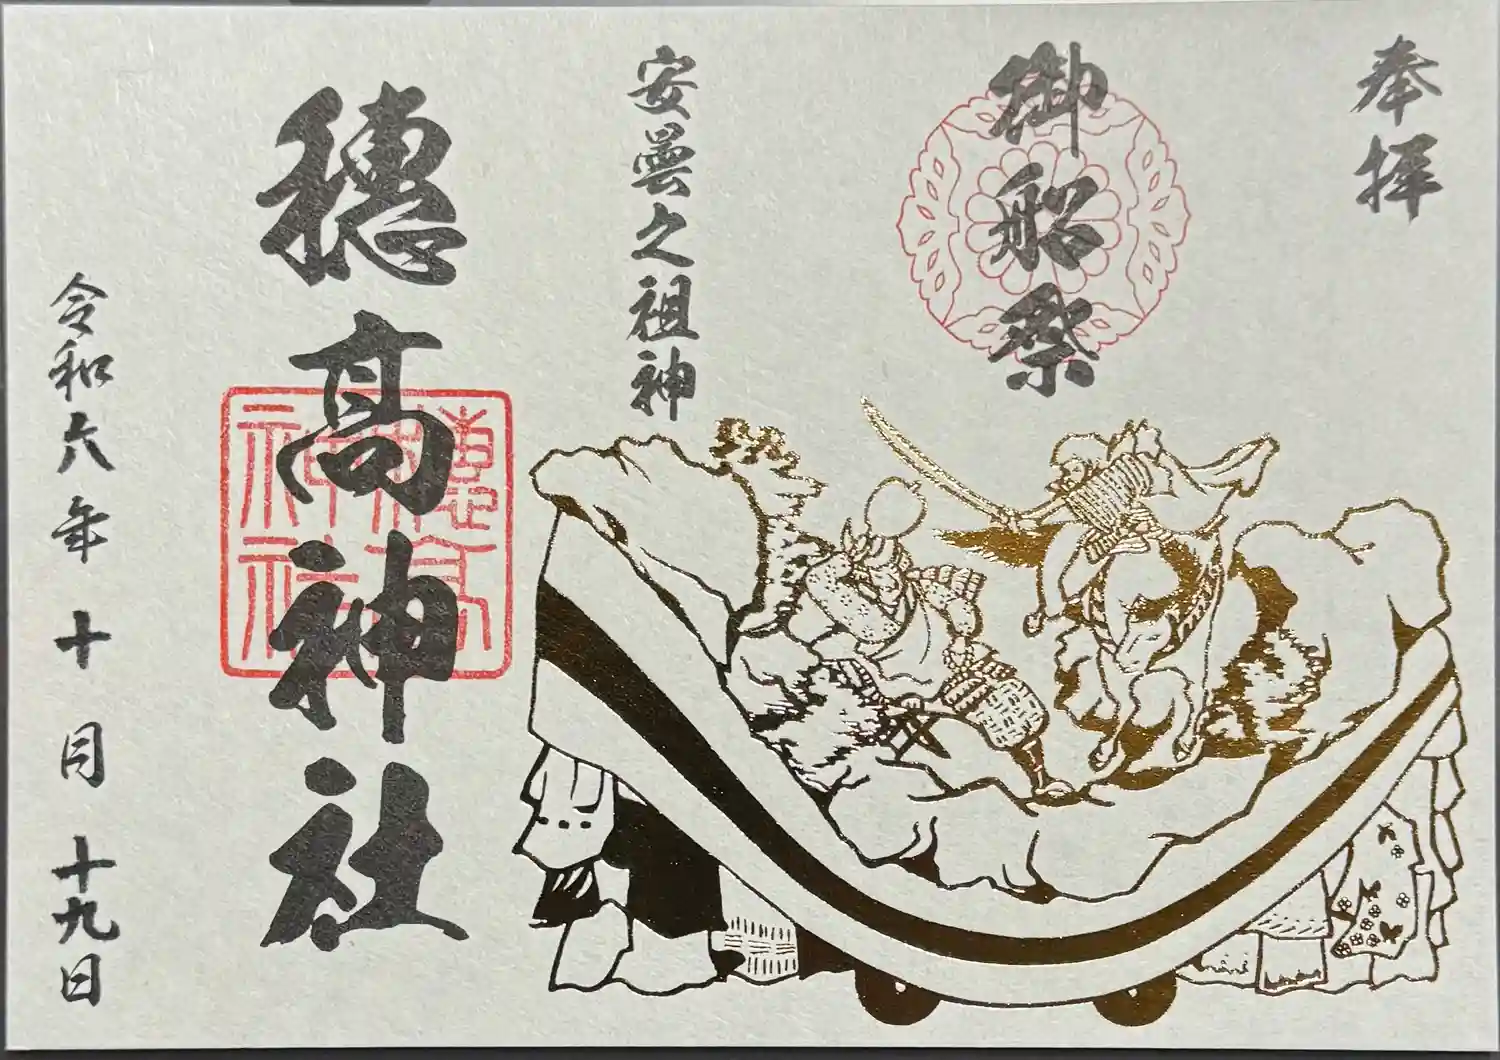 奉拝
御船祭
安曇之祖神
穂高神社
穂高神社
令和六年十月十九日